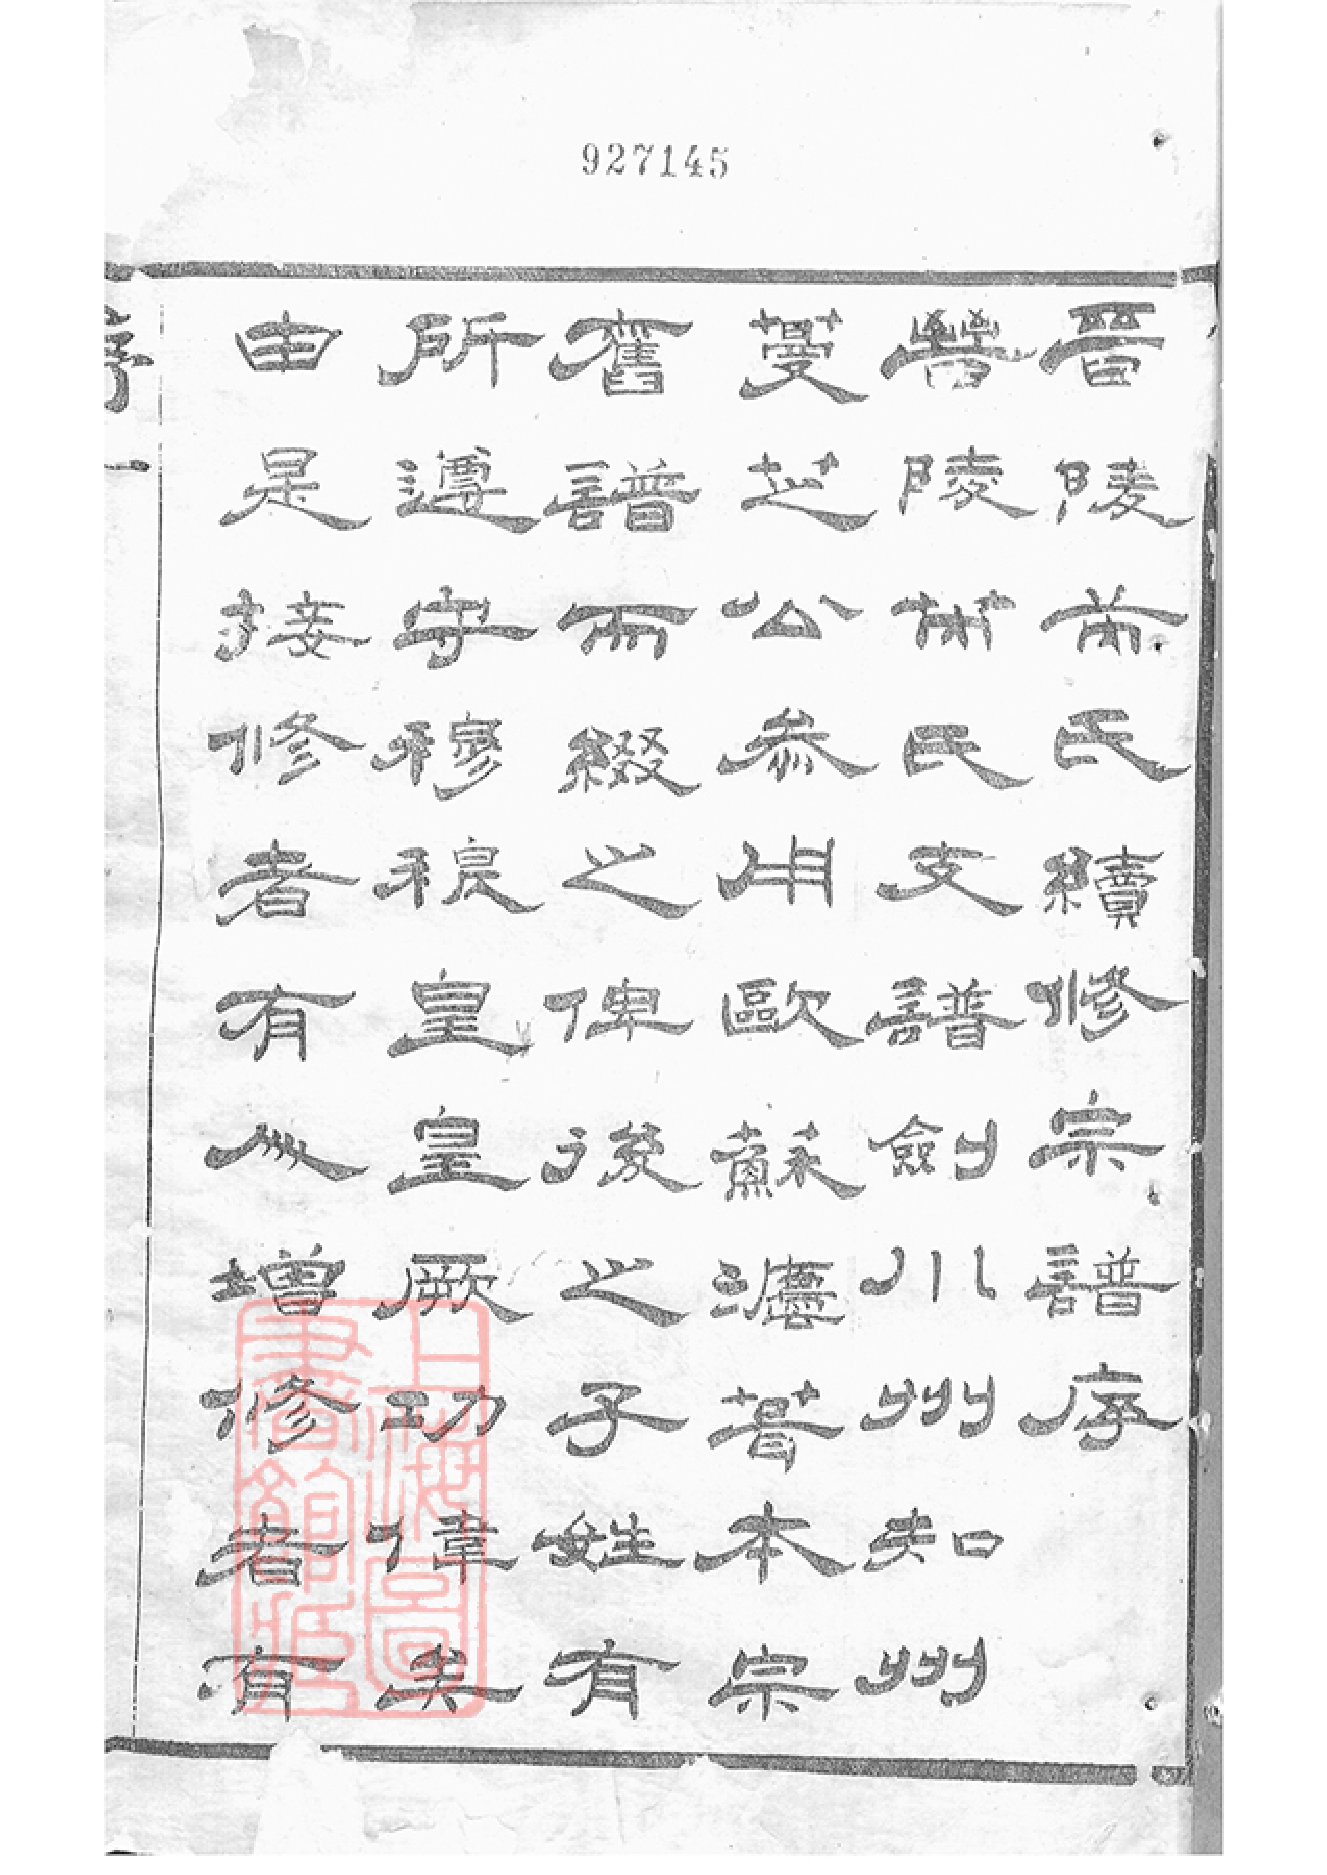 927145
晉陵氏續修宗譜序
陵氏支譜劍川州知州
蔓芝公參用歐蘇灋著本宗
舊譜而綴之俾後之子姓有
所遵守穆穆皇皇厥功偉矣
由是接修者有增修者有
序 一
上海圖書館藏